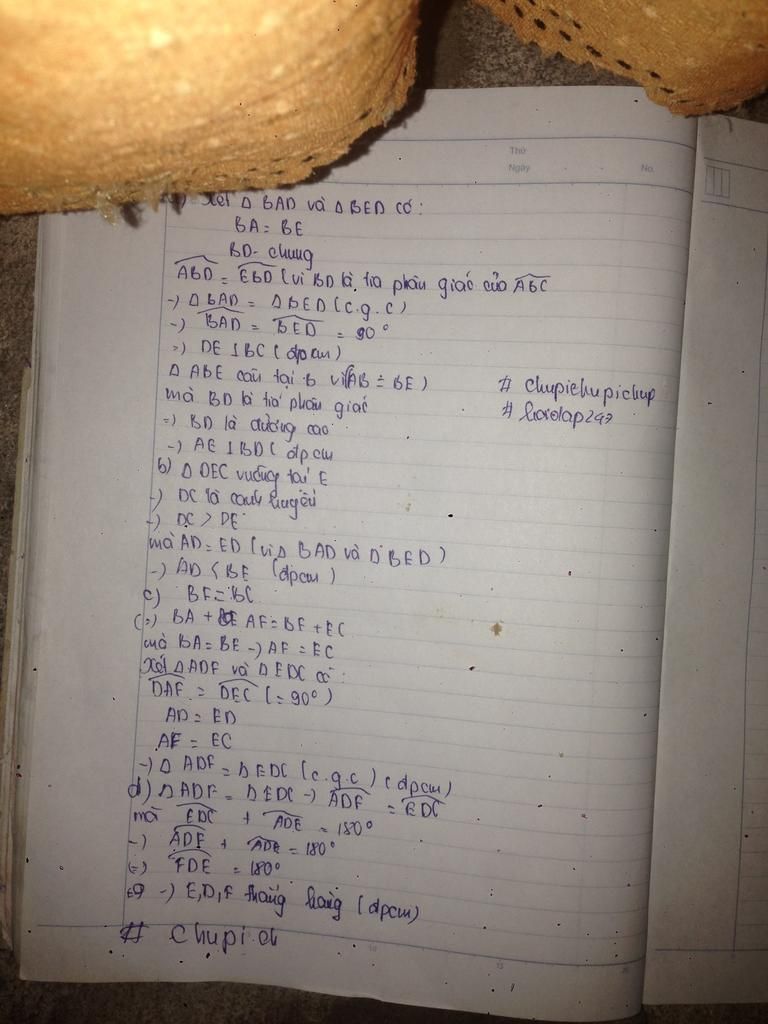 Thứ
Ngày No.
Xét Δ BAD và Δ BED có:
BA = BE
BD - chung
ABD = EBD (vì BD là tia phân giác của ABC
-) Δ BAD = Δ BED (c.g.c)
-) BAD = BED = 90°
=) DE ⊥ BC (đpcm)
Δ ABE cân tại B vì (AB = BE) # chupichupichup
mà BD là tia phân giác # hoidap247
=) BD là đường cao
-) AE ⊥ BD ( đpcm
b) Δ DEC vuông tại E
-) DC là cạnh huyền
-) DC > DE
mà AD = ED (vì Δ BAD và Δ BED)
-) AD < BE (đpcm)
c) BF = BC
(=) BA + AF = BE + EC
mà BA = BE -) AF = EC
Xét Δ ADF và Δ EDC có:
DAF = DEC (= 90°)
AD = ED
AF = EC
-) Δ ADF = Δ EDC (c.g.c) (đpcm)
d) Δ ADF = Δ EDC -) ADF = EDC
mà EDC + ADE = 180°
-) ADF + ADE = 180°
(=) FDE = 180°
-) E, D, F thẳng hàng (đpcm)
# chupich